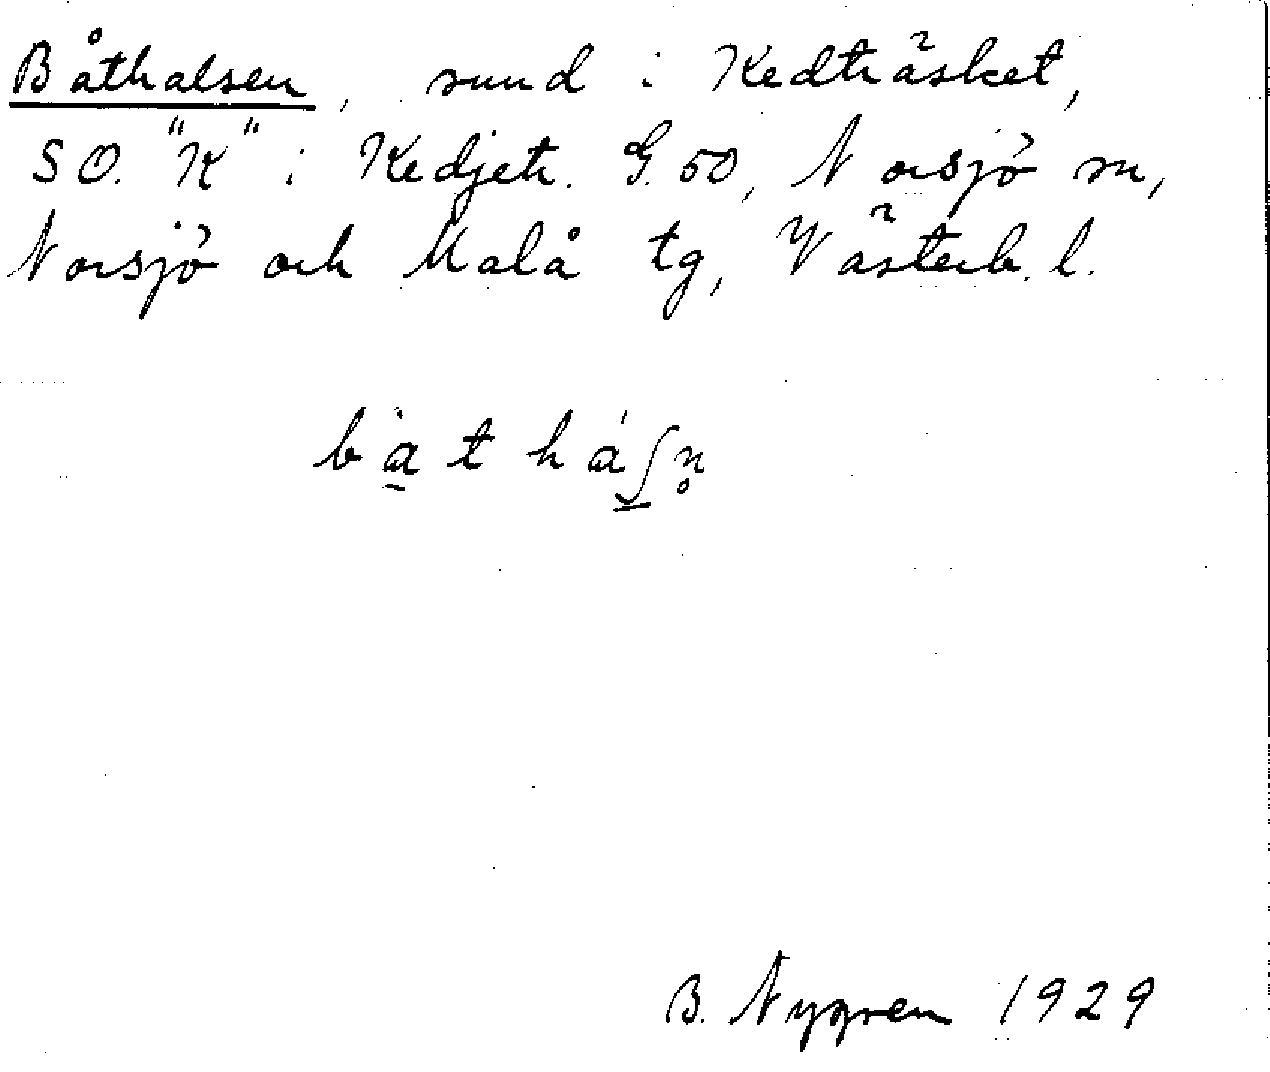 Båthalsen, sund i Kedträsket,
SO. "K" i Kedjetr. G. 50, Norsjö sn,
Norsjö och Malå tg, Västerb. l.
B. Nygren 1929